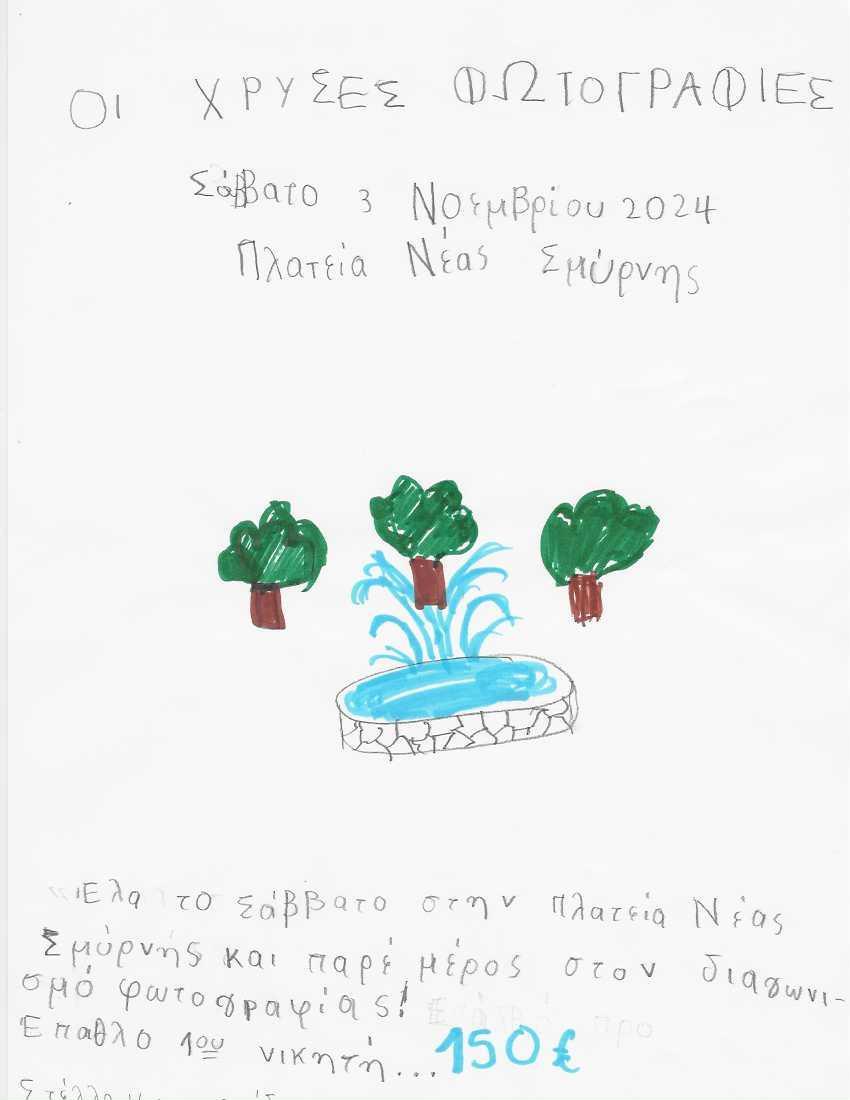 ΟΙ ΧΡΥΣΕΣ ΦΩΤΟΓΡΑΦΙΕΣ
Σάββατο 3 Νοεμβρίου 2024
Πλατεία Νέας Σμύρνης
Έλα το Σάββατο στην πλατεία Νέας
Σμύρνής και παρέ μέρος στον διαγωνι-
σμό φωτογραφίας!
Έπαθλο 1ου νικητή...150€